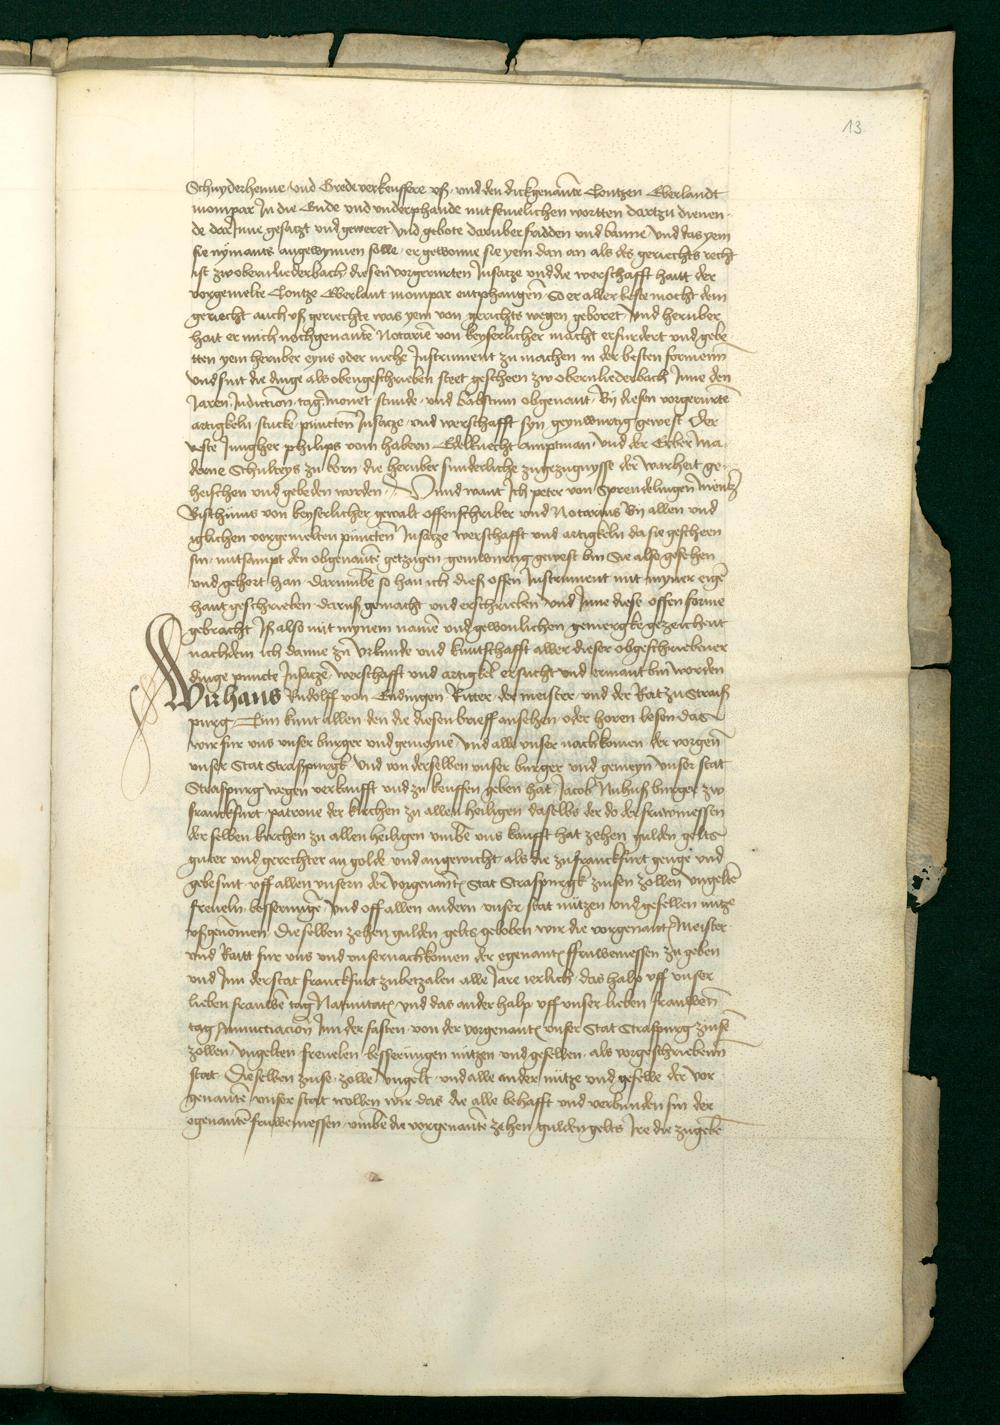 13
Schnyderhenne und Grede verkeuffere uß und den dickgenante Contzen Eberlandt
mompar In die Ende und underphande mit semelichen wortten dartzu dienen-
de dar Inne gesatzt und geweret und gebote daruber fridden und banne und das yem
sie nymants angewynnen solle er gewonne sie yem dan an als des geriechts recht
ist zw obernliederbach diesen vorgerurten Insatze und die werschafft hatt der
vorgemelte Contze Eberlant mompar entphangen So er aller beste mocht dem
geriecht auch uß geriechte was yem von gerichts wegen geboret und heruber
hait er mich nochgenanten Notarien von keyserlicher macht erfurdert und gebe
tten yem heruber eyns oder mehe Instrument zu machen in der besten formenn
und sint die dinge als obengeschrieben steet gescheen zw obernliederbach Inne den
Jaren Indiction tag monet stunde und babstum obgenant By diesen vorgerurte
artigkeln stucke puncten Insatze und werschafft syn geynwurtig gewest Der
veste Jungher philips vom habern Edelknecht amptman und der Erber ma
derne Schulteys zu born die heruber sunderliche zugezugnysse der warheit ge-
heischen und gebeden worden Unnd want Ich peter von Sprendelingen mentz
Bisthums von keyserlicher gewalt offenschriber und Notarius By allen und
iglichen vorgemelten puncten Insatze werschafft und artigkeln da sie gescheen
sin mitsampt den obgenante getzugen geinwurtig gewest bin Sie also gesehen
und gehort han darumbe so han ich dieß offen Instrument mit myner eige
hant geschrieben daruß gemacht und erschrieben und Inne diese offen forme
gebracht Iß also mit mynem name und gewonlichen gemergke gezeichent
nachdem ich danne zu urkunde und kuntschafft aller dieser obgeschriebener
dinge puncte Insatze werschafft und artigkel ersucht und ermant bin worden
Wir hans Rudolff von Endingen Ritter der meister und der Rat zu Straß
purg Tun kunt allen den die diesen brieff ansehen oder horen lesen das
wir fur uns unser burger und gemeyne und alle unser nachkomen der vorgen
unser Stat Straßpurgk und von derselben unser burger und gemeyn unser stat
Straßpurg wegen verkaufft und zu keuffen geben hat Jacob Nuhuß burger zw
franckfurt patrone der kirchen zu allen heiligen daselbs der do der fruwmessen
der selben kirchen zu allen heiligen umbe uns kaufft hat zehen gulden gelts
guter und gerechter an golde und an gewicht als die zu franckfurt genge und
gebe sint uff allen unsern der vorgenant Stat Straßpurgk zinsen zollen ungelte
freveln besserunge und off allen andern unser stat nutzen und gefellen nutze
ußgenomen Dieselben zehen gulden gelts geloben wir die vorgenant Meister
und Ratt fur uns und unser nachkomen der egenant ffruwemessen zu geben
und Inn der stat franckfurt zu betzalen alle Jare ierlich das halp uff unser
lieben frauwe tag Nativitat und das ander halp uff unser lieben frauwen
tag Annunciacion Inn der fasten von der vorgenant unser Stat Straßpurg zinse
zollen ungelten frevelen besserungen nutzen und gefellen als vorgeschriebenn
stat Dieselben zinse zolle ungelt und alle ander nutze und gefelle der vor
genante unser stat wollen wir das die alle behafft und verbunden sin der
egenante fruwemessen umbe die vorgenante zehen gulden gelts Ire die zu gebe